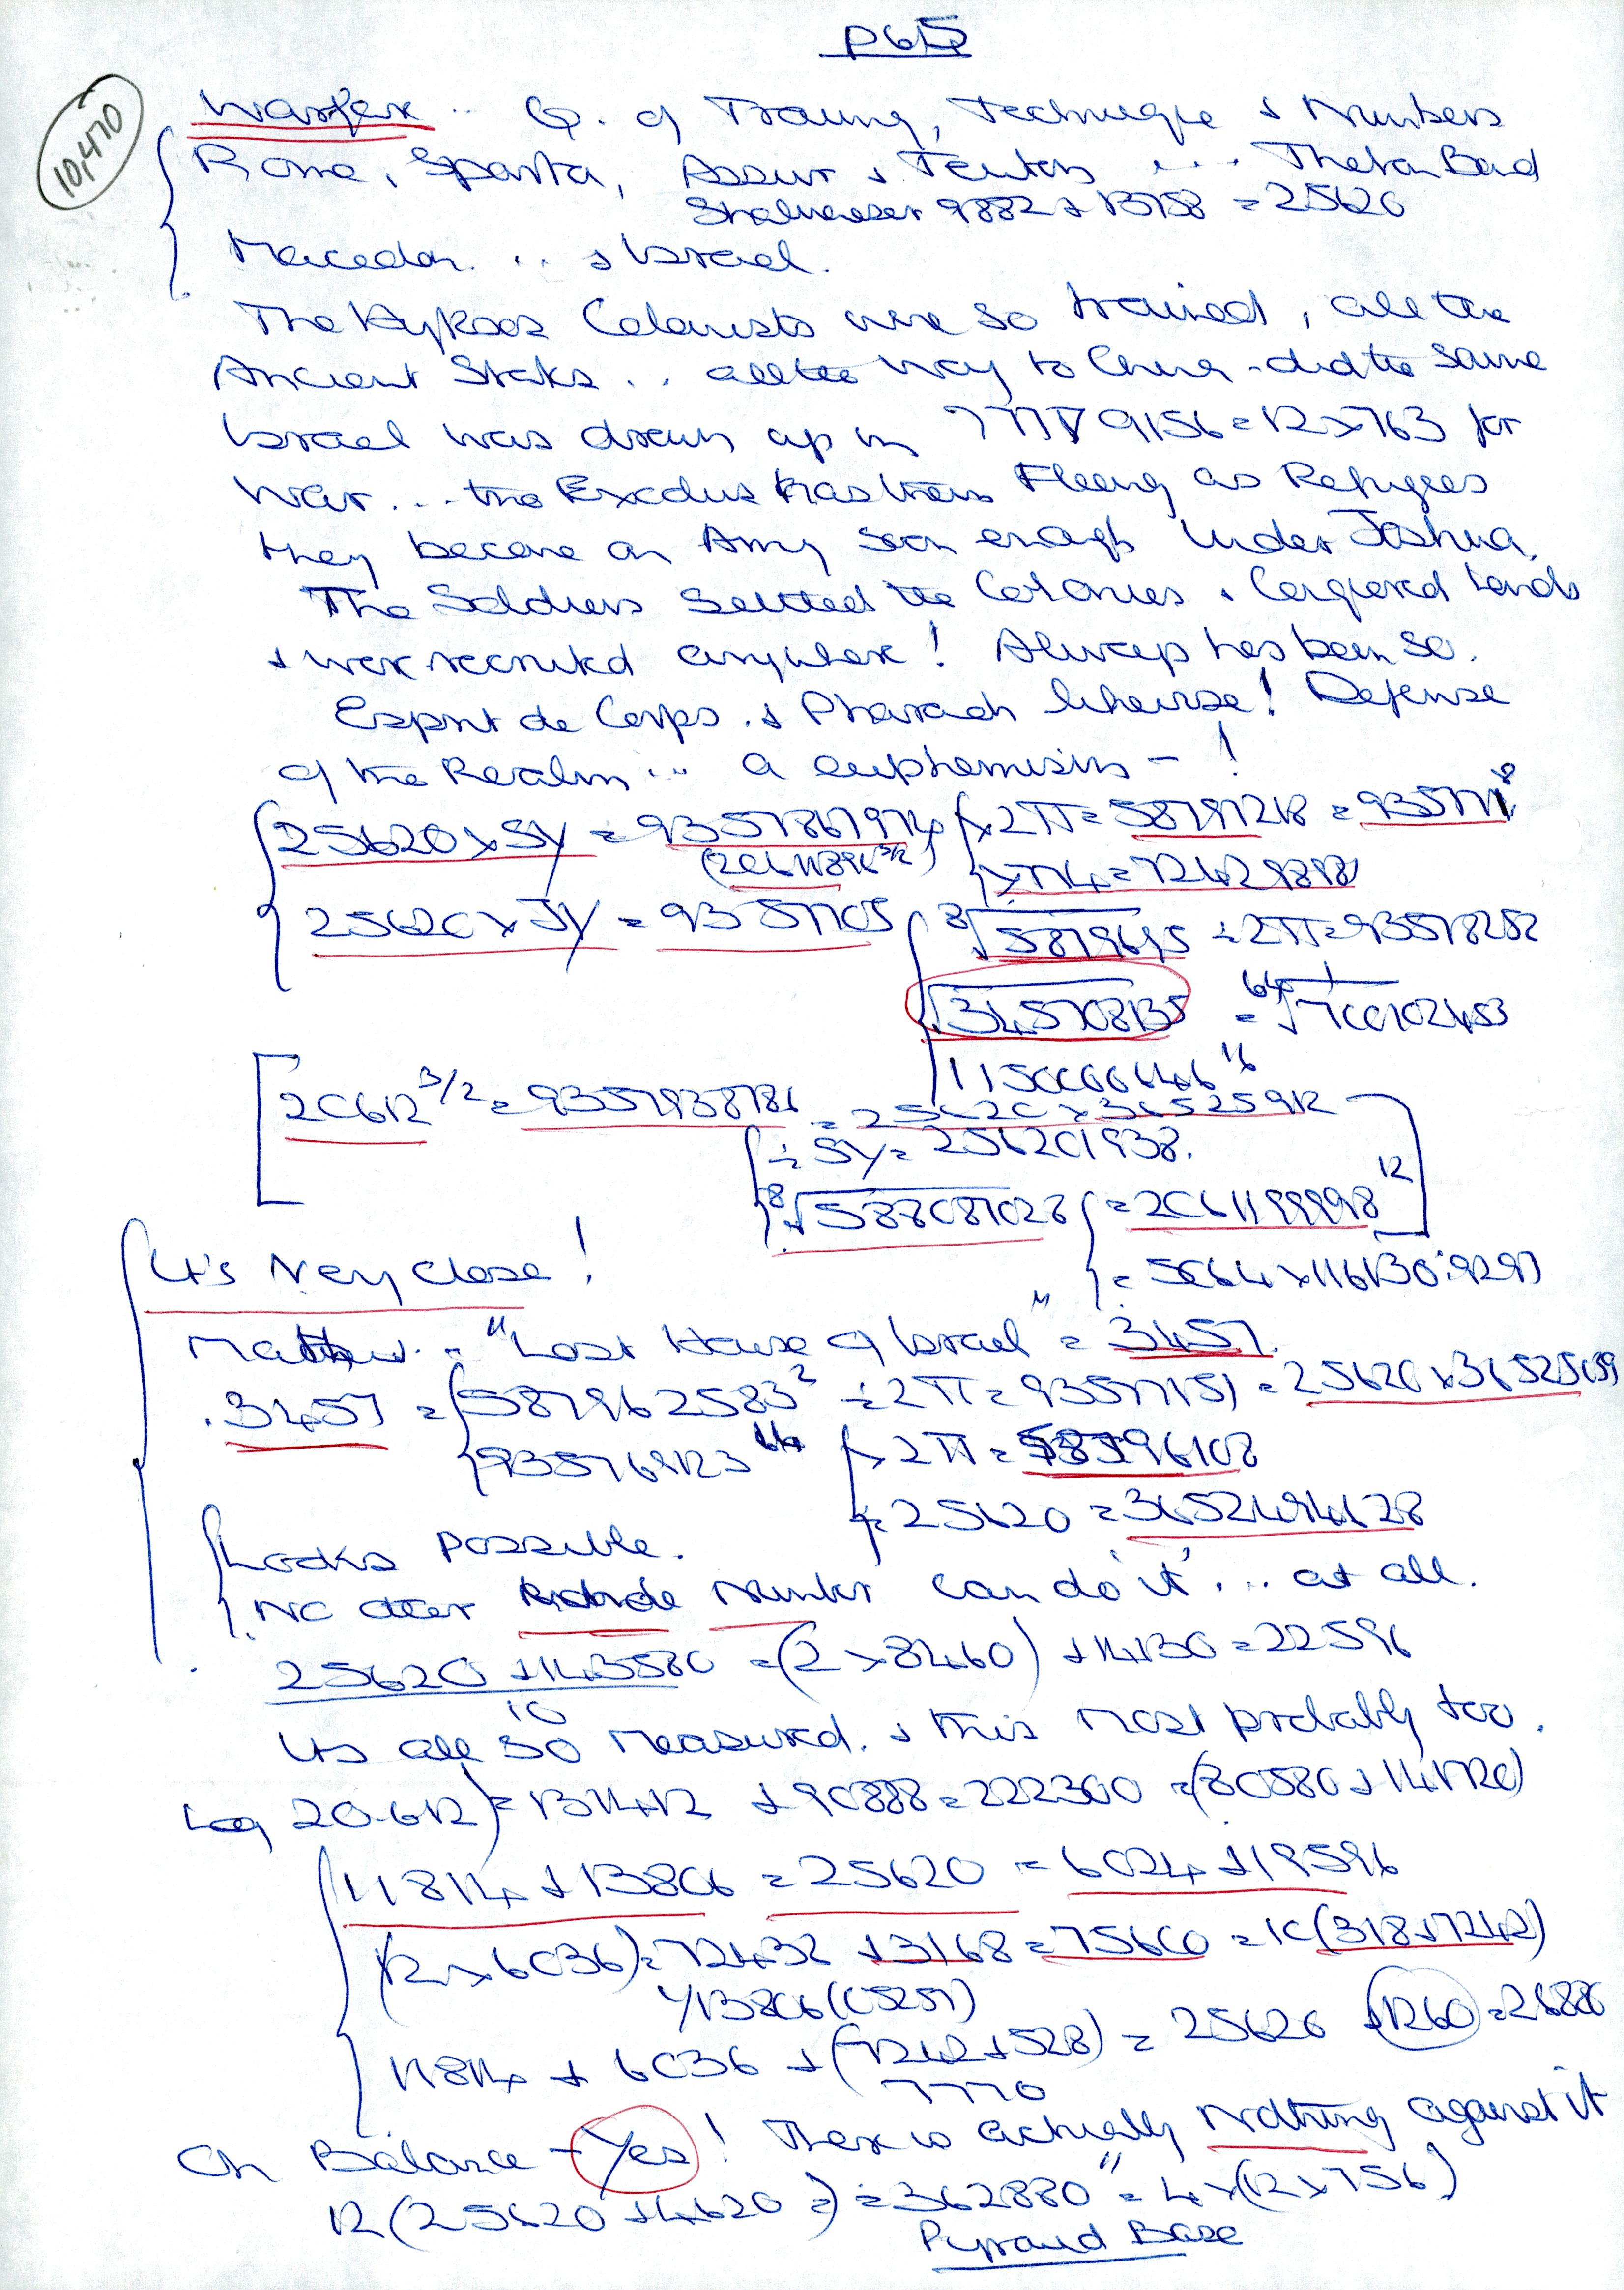 p65
10,470
Warfare .. Q. of Training, Technique & Numbers
Rome, Sparta, Assur & Teuton ... Theban Band
Shalmeneser 9882 + 15738 = 25620
Macedon. .. & Israel.
The Hyksos Colonists were so trained, all the
Ancient States .. all the way to China - did the same
Israel was drawn up in 9156 = 12 x 763 for
War ... the Exodus has them Fleeing as Refugees
they became an Army soon enough under Joshua.
The Soldiers settled the Colonies & Conquered Lands
& were recruited anywhere! Always has been so.
Esprit de Corps. & Pharaoh likewise! Defense
of the Realm ... a euphemism - !
25620 x SY = 9357867974 x 2π = 58797218 =
25620 x JY = 9357705
8√5879645 ÷ 2π = 93578282
√345708135 = 64√
20612 3/2 = 9357938786 = 25620 x 36525912
÷ SY = 256201938.
8√588087028 = 2061199998 12
= 5064 x 116130.9297
It's Very Close!
Matthew .. "Lost House of Israel" = 3457.
.3457 = 587962583² ÷ 2π = 93577151 = 25620 x 36525039
935769123 64 x 2π = 58796108
÷ 25620 = 3652494628
Looks possible.
No other Number can do it ... at all.
25620 + 143580 = (2 x 8460) + 14130 = 22596
10
Its all so measured. & this most probably too.
Log 20.612) = 131412 + 90888 = 222300 = (80580 + 141720)
11814 + 13806 = 25620 = 6024 + 19596
(12 x 6036) = 72432 + 3168 = 75600 = 10(318 + 7242)
√13806 (05257)
11814 + 6036 + (7242 + 528) = 25620 + 1260 = 26880
7770
On Balance - Yes! There is actually Nothing against it
12(25620 + 4620 =) = 362880" = 4 x (12 x 756)
Pyramid Base